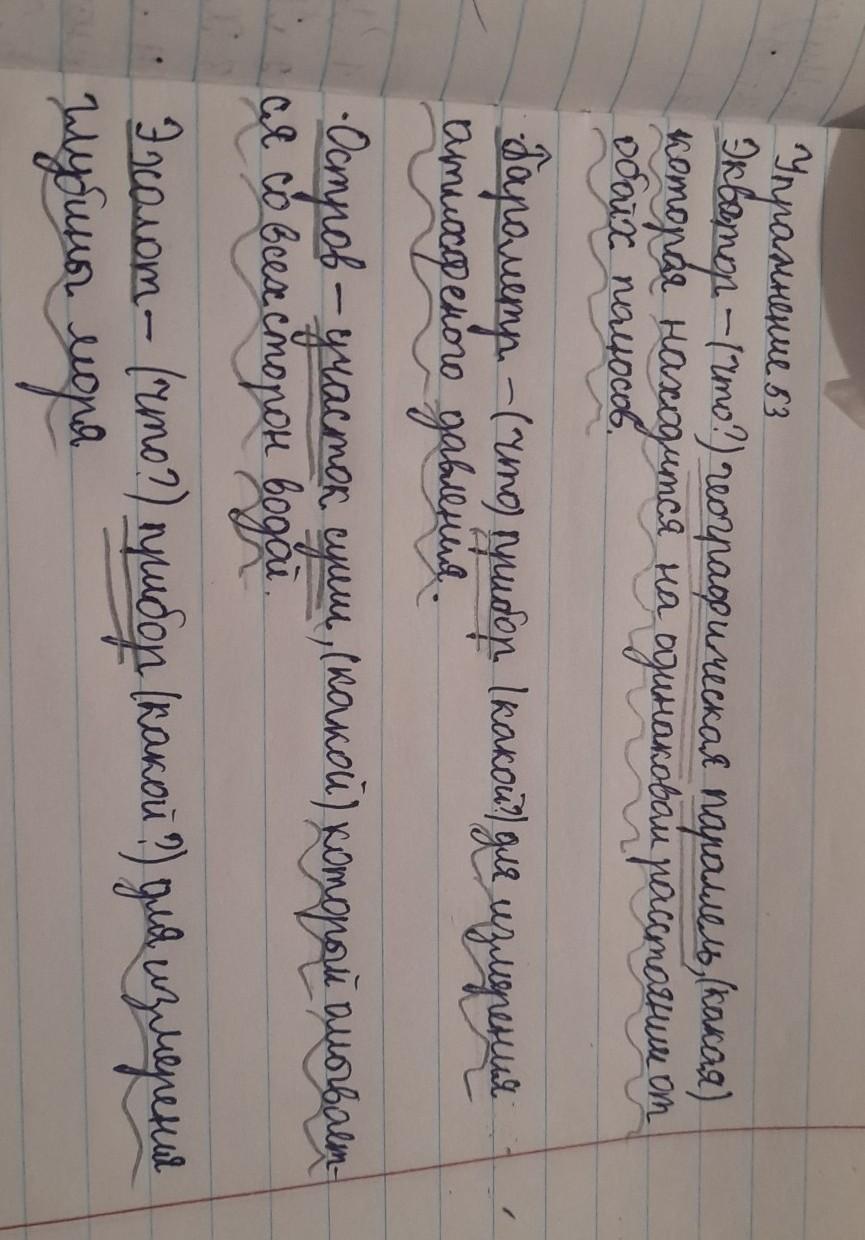 Упражнение 53
Экватор – (что?) географическая параллель, (какая)
которая находится на одинаковом расстоянии от
обоих полюсов.
Барометр – (что) прибор (какой?) для измерения
атмосфеного давления.
Остров – участок суши, (какой) который омывает-
ся со всех сторон водой.
Эхолот – (что?) прибор (какой?) для измерения
глубины моря